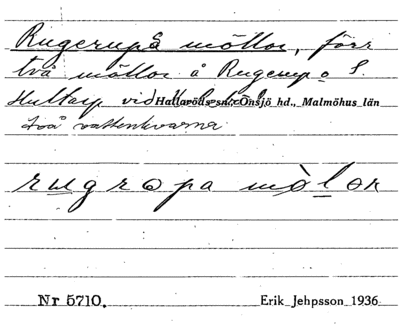 Rugerups möllor, förr
två möllor å Rugerup o S.
Hultarp vid Hallaröds sn., Onsjö hd., Malmöhus län
två vattenkvarnar
rugropa mølor
Nr 5710. Erik Jehpsson 1936